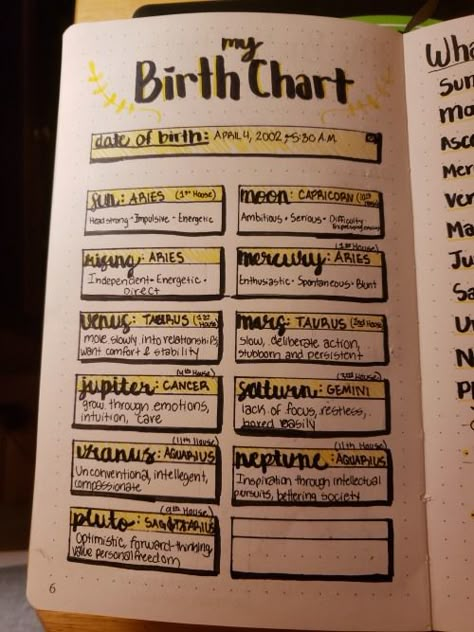 my
Birth Chart
date of birth: APRIL 4, 2002 5:30 A.M.
sun: ARIES (1st House)
Headstrong - Impulsive - Energetic
moon: CAPRICORN (10th House)
Ambitious • Serious • Difficulty
rising: ARIES
Independent • Energetic •
Direct
(1st House)
mercury: ARIES
Enthusiastic • Spontaneous • Blunt
venus: TAURUS House)
move slowly into relationships,
want comfort & stability
mars: TAURUS (2nd House)
slow, deliberate action,
stubborn and persistent
(4th House)
jupiter: CANCER
grow through emotions,
intuition, care
(3rd House)
saturn: GEMINI
lack of focus, restless,
bored easily
(11th House)
uranus: AQUARIUS
Unconventional, intellegent,
compassionate
(11th House)
neptune: AQUARIUS
Inspiration through intellectual
pursuits, bettering society
(9th House)
pluto: SAGITTARIUS
Optimistic, forward-thinking,
value personal freedom
6
Wha
Sun
Mo
Asce
Mer
Ver
Ma
Ju
Sa
Ur
N
Pl